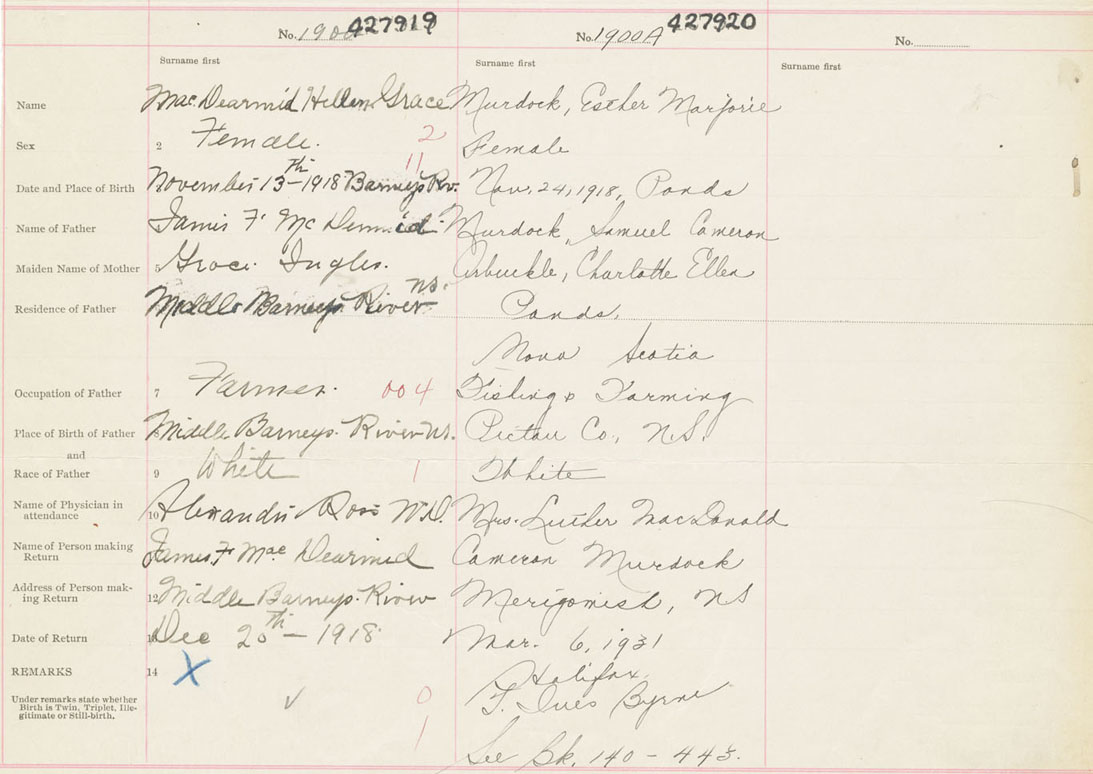 No. 1900 427919 No. 1900A 427920 No.
Surname first Surname first Surname first
Name Mac Dearmid Hellen Grace Murdock, Esther Marjorie
Sex 2 Female. 2 Female
11
Date and Place of Birth November 13th - 1918 Barneys Rv. Nov. 24, 1918, Ponds
Name of Father James F. McDermid Murdock, Samuel Cameron
Maiden Name of Mother 5 Grace Ingles. Arbuckle, Charlotte Ellen
Residence of Father Middle Barneys River NS. Ponds,
Nova Scotia
Occupation of Father 7 Farmer. 004 Fishing & Farming
Place of Birth of Father Middle Barneys River NS. Pictou Co., N.S.
and
Race of Father 9 White 1 White
Name of Physician in
attendance 10 Alexander Ross M.D. Mrs. Luther MacDonald
Name of Person making
Return James F. Mac Dearmid Cameron Murdock
Address of Person mak-
ing Return 12 Middle Barneys River Merigomish, NS
Date of Return Dec 20th - 1918 Mar. 6, 1931
REMARKS 14 X Halifax
Under remarks state whether
Birth is Twin, Triplet, Ille-
gitimate or Still-birth. ✓ 0 F. Ines Byrne
1
See Bk. 140 - 443.